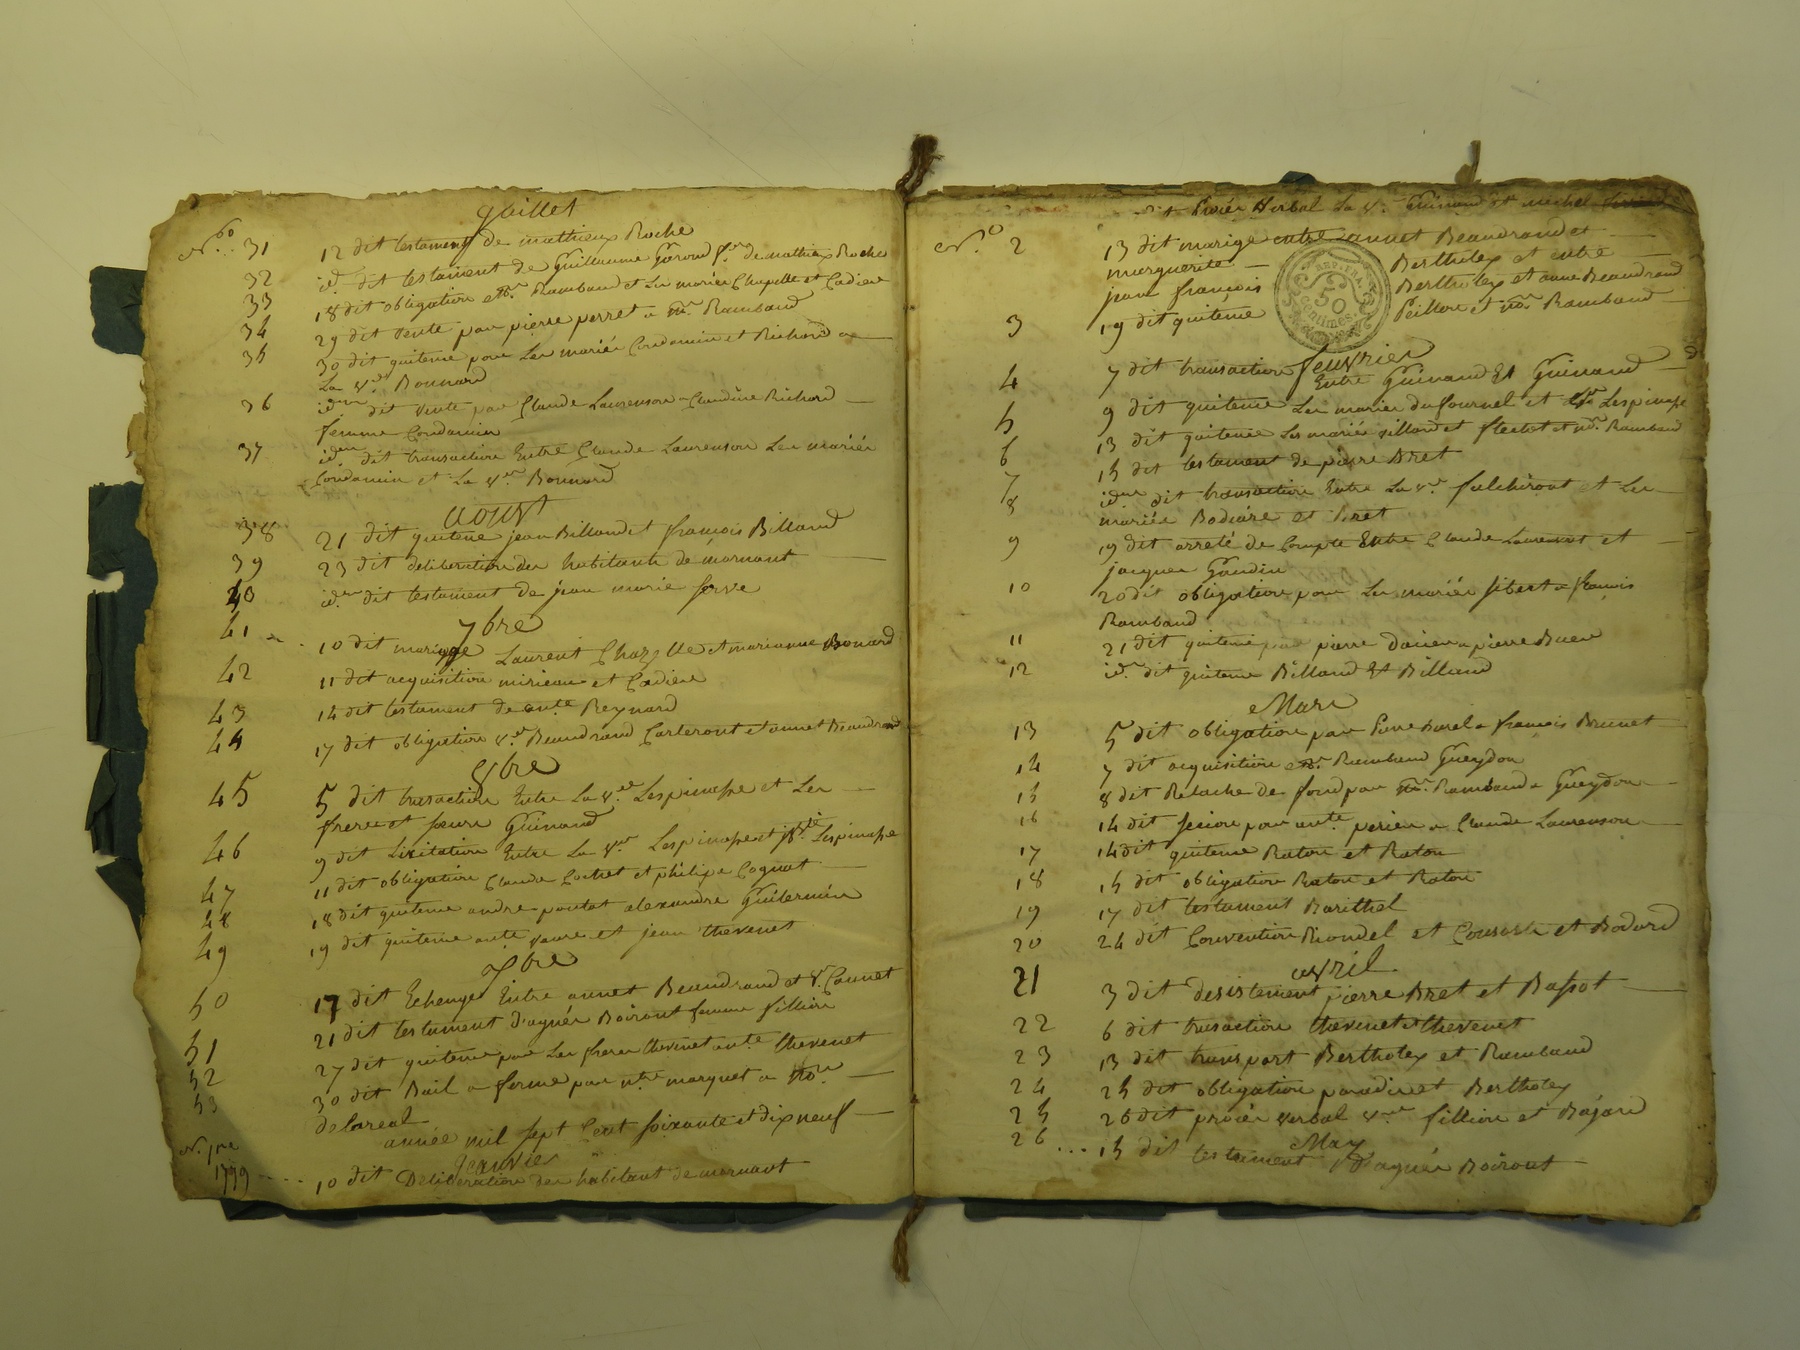 Juillet
N.º 31 12 dit testament de mathieu Roche
32 id.m dit testament de Guillaume Giroud f.on de mathieu Roche
33 18 dit obligation Rambaud et Les mariés Chapelle et Cadiere
34 29 dit Vente par pierre perret a Rambaud
35 30 dit quitence pour Les mariés Condamin et Richard a
La v.e Bonnard
36 idem dit vente par Claude Laurenson a Claudine Richard
femme Condamin
37 idem dit transaction Entre Claude Laurenson Les mariés
Condamin et La v.e Bonnard
aoust
38 21 dit quitence jean Billand et françois Billand
39 23 dit deliberation des habitants de mornant
40 id.m dit testament de jean marie serve
7bre
41 10 dit mariage Laurent Chazelle et marianne Bonard
42 11 dit acquisition mirieu et Cadiere
43 14 dit testament de ant.e Reynard
44 17 dit obligation v.e Beaudrand Carteront et annet Beaudrand
8bre
45 5 dit transaction Entre La v.e Lespinasse et Les
freres et sœurs Guinand
46 9 dit Licitation Entre La v.e Lespinasse et Lespinasse
47 11 dit obligation Claude Cochet et philipe Cognat
48 18 dit quitence andre poutot alexandre Guilermin
49 19 dit quitence ant.e vaure et jean thevenet
9bre
50 17 dit Echanges Entre annet Beaudrand et v.e Connet
51 21 dit testament d'agnés Boiront femme fillion
52 27 dit quitence par Les freres thevenet ant.e thevenet
53 30 dit Bail a ferme par marquet a
deboreal
année mil sept Cent soixante et dix neuf
Janvier
N. 1re 1779 10 dit Deliberation des habitant de mornant
dit Procés Verbal La v.e Guinand et michel
N.º 2 13 dit mariage entre annet Beaudrand et
marguerite Bertholey et entre
REP. FRA. 50 centimes
jean françois Bertholey et anne Beaudrand
3 19 dit quitence Peillon et Rambaud
fevrier
4 7 dit transaction Entre Guinand Et Guinand
5 9 dit quitence Les mariés dufournel et Lespinasse
6 13 dit quitence Les mariés villard et flechet et Rambaud
7 15 dit testament de pierre Bret
8 idem dit transaction Entre La v.e fulchiront et Les
mariés Bodiare et Bret
9 19 dit arreté de Compte Entre Claude Laurenson et
jacques Gaudin
10 20 dit obligation pour Les mariés sibert a françois
Rambaud
11 21 dit quitence par pierre Darier a pierre Buer
12 id.m dit quitence Billand Et Billand
Mars
13 5 dit obligation par Pierre borel a françois Brunet
14 7 dit acquisition Rambaud Gueydon
15 8 dit Relache de fond par Rambaud a Gueydon
16 14 dit par ant.e perier a Claude Laurenson
17 14 dit quitence Raton et Raton
18 15 dit obligation Raton et Raton
19 17 dit testament Barithel
20 24 dit Convention Riondel et et Bodard
avril
21 3 dit desistement pierre Bret et Bassot
22 6 dit transaction thevenet et thevenet
23 13 dit transport Bertholey et Rambaud
24 25 dit obligation paradis et Bertholey
25 26 dit procés verbal v.e fillion et Bajard
May
26 15 dit testament d'agnés Boiront